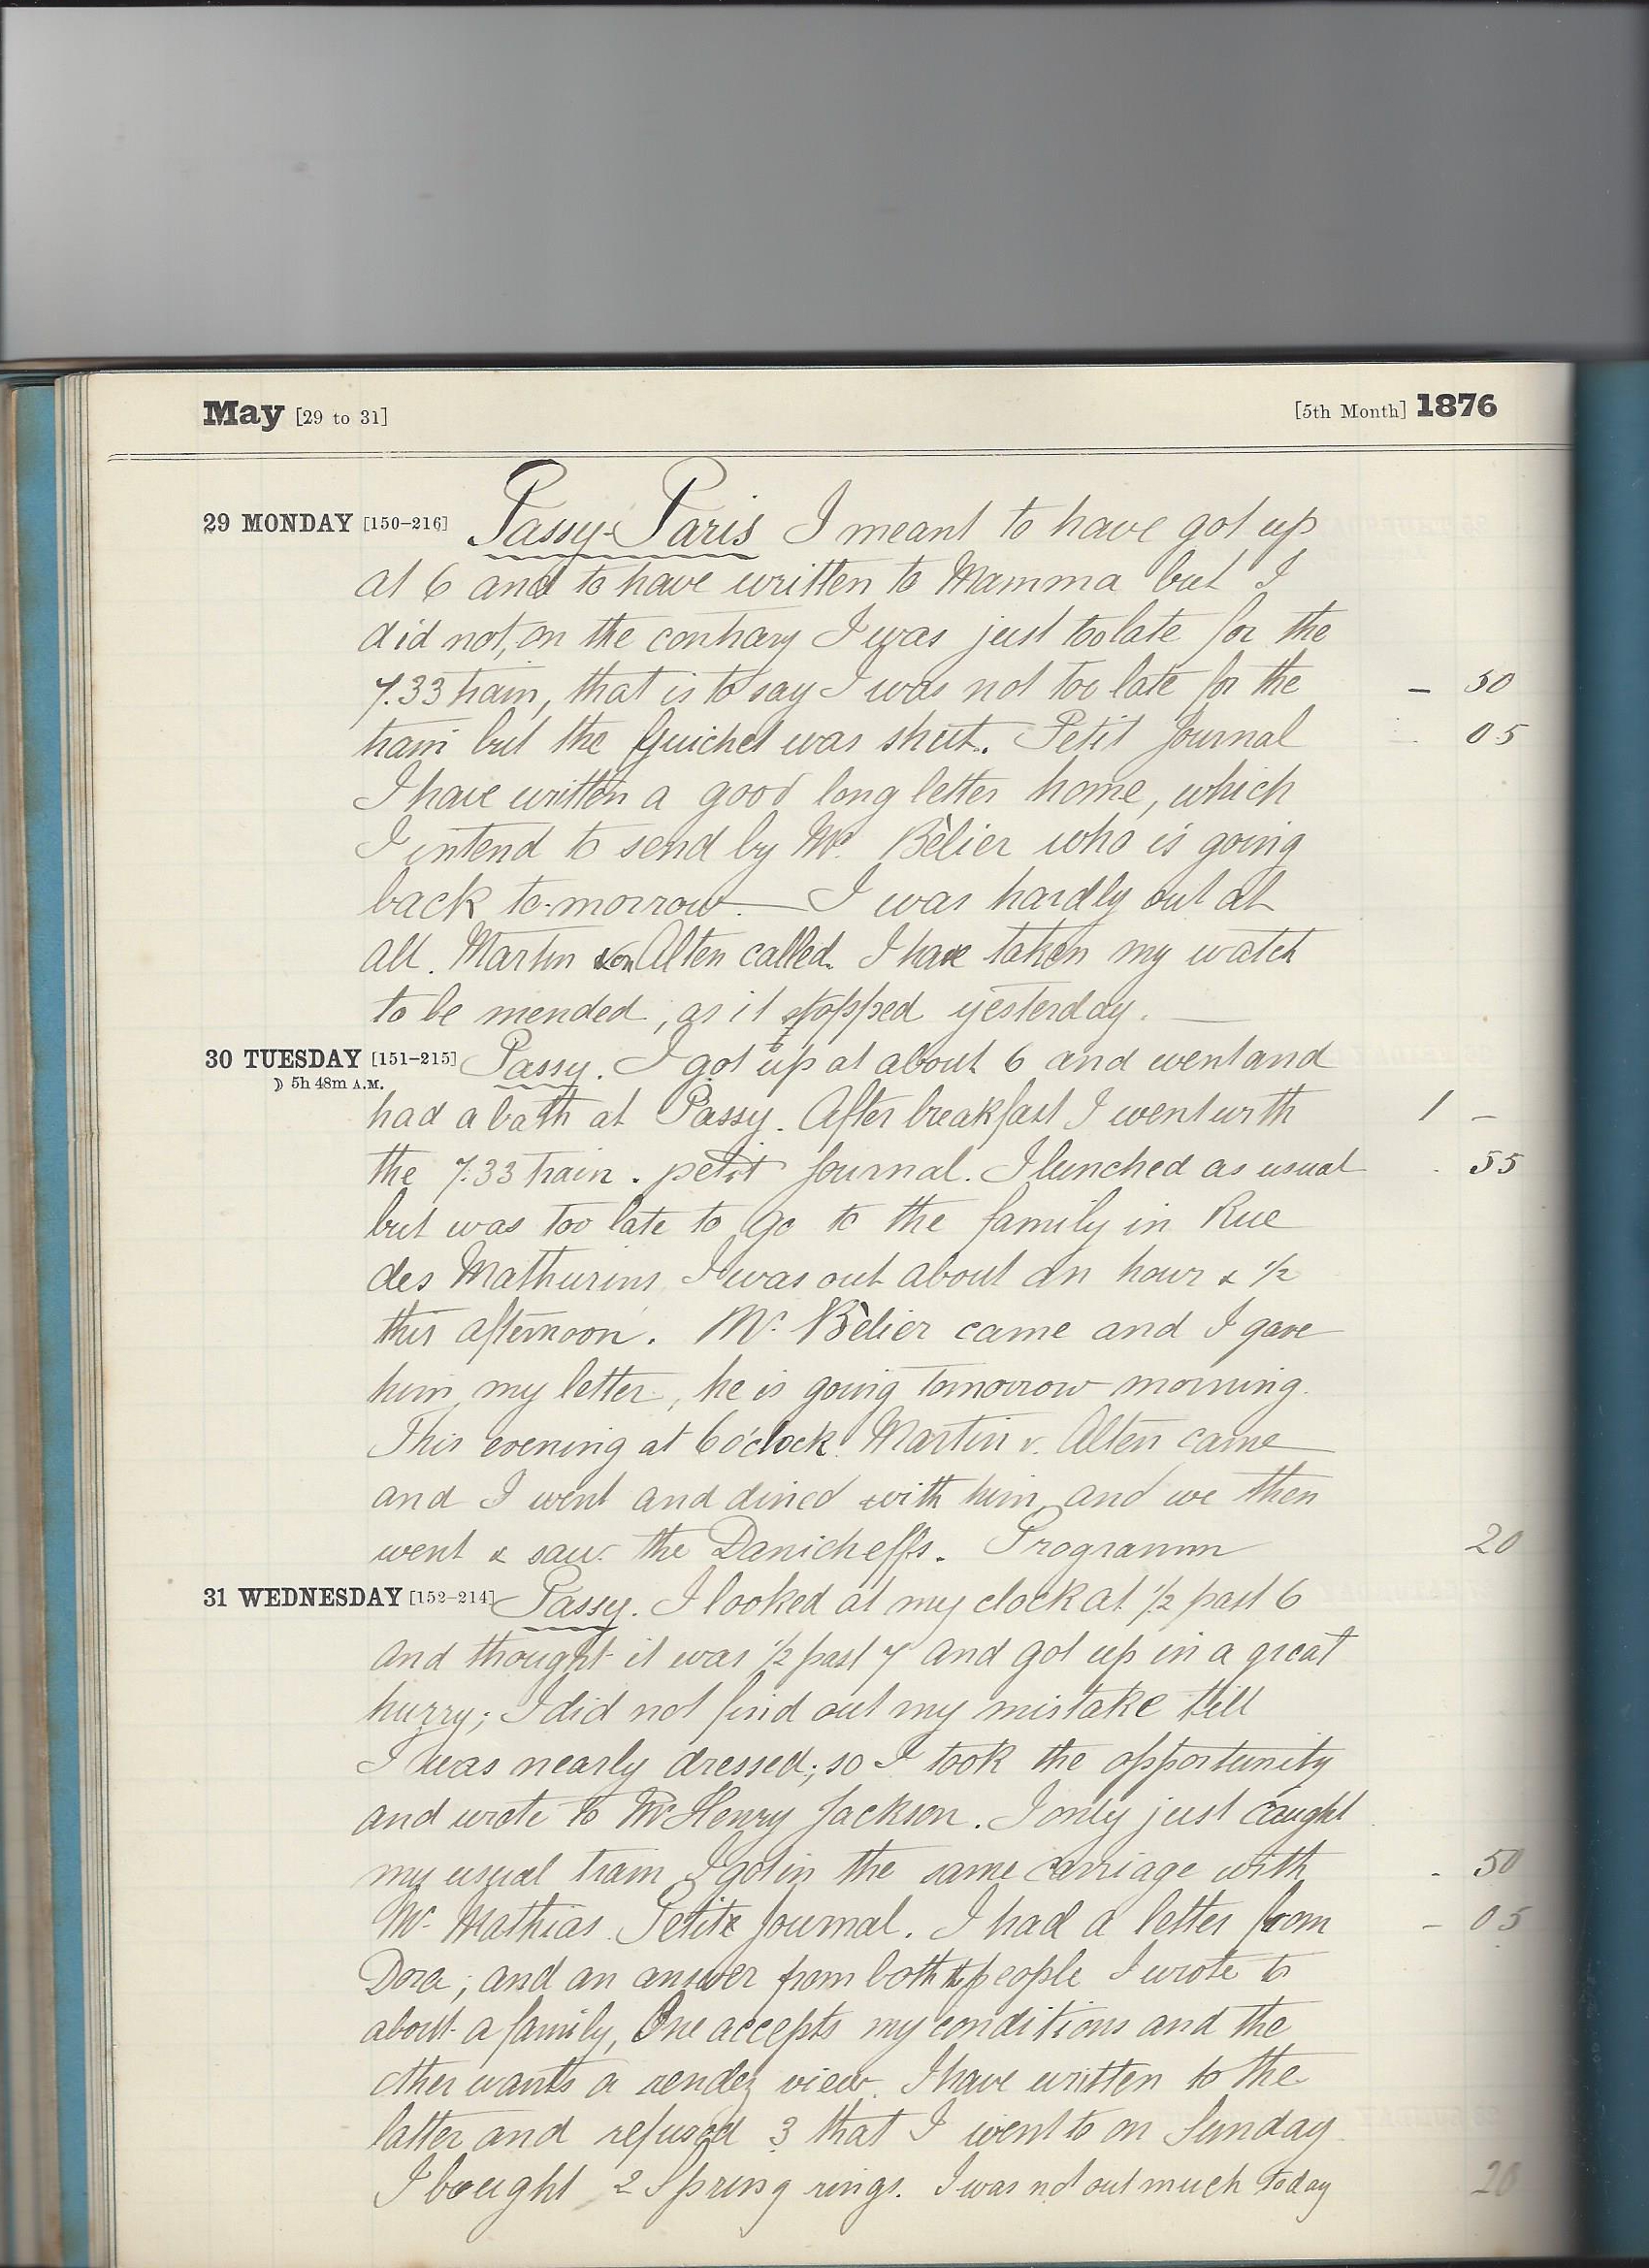 May [29 to 31] [5th Month] 1876
29 MONDAY [150–216] Passy-Paris I meant to have got up
at 6 and to have written to Mamma but I
did not, on the contrary I was just too late for the
7.33 train, that is to say I was not too late for the – 50
train but the Guichet was shut. Petit Journal 05
I have written a good long letter home, which
I intend to send by Mr. Bèlier who is going
back to-morrow. — I was hardly out at
all. Martin von Alten called. I have taken my watch
to be mended, as it stopped yesterday. —
30 TUESDAY [151–215] Passy. I got up at about 6 and went and
☽ 5h 48m A.M.
had a bath at Passy. After breakfast I went with 1 –
the 7.33 train. petit Journal. I lunched as usual . 55
but was too late to go to the family in Rue
des Mathurins. I was out about an hour & ½
this afternoon. Mr. Bèlier came and I gave
him my letter, he is going tomorrow morning.
This evening at 6 o'clock Martin v. Alten came
and I went and dined with him and we then
went & saw the Danicheffs. Programm 20
31 WEDNESDAY [152–214] Passy. I looked at my clock at ½ past 6
and thought it was ½ past 7 and got up in a great
hurry; I did not find out my mistake till
I was nearly dressed; so I took the opportunity
and wrote to Mr Henry Jackson. I only just caught
my usual train I got in the same carriage with - 50
Mr. Mathias. Petit Journal. I had a letter from – 05
Dora; and an answer from both the people I wrote to
about a family, One accepts my conditions and the
other wants a rendez view. I have written to the
latter and refused 3 that I went to on Sunday.
I bought 2 Spring rings. I was not out much today 20